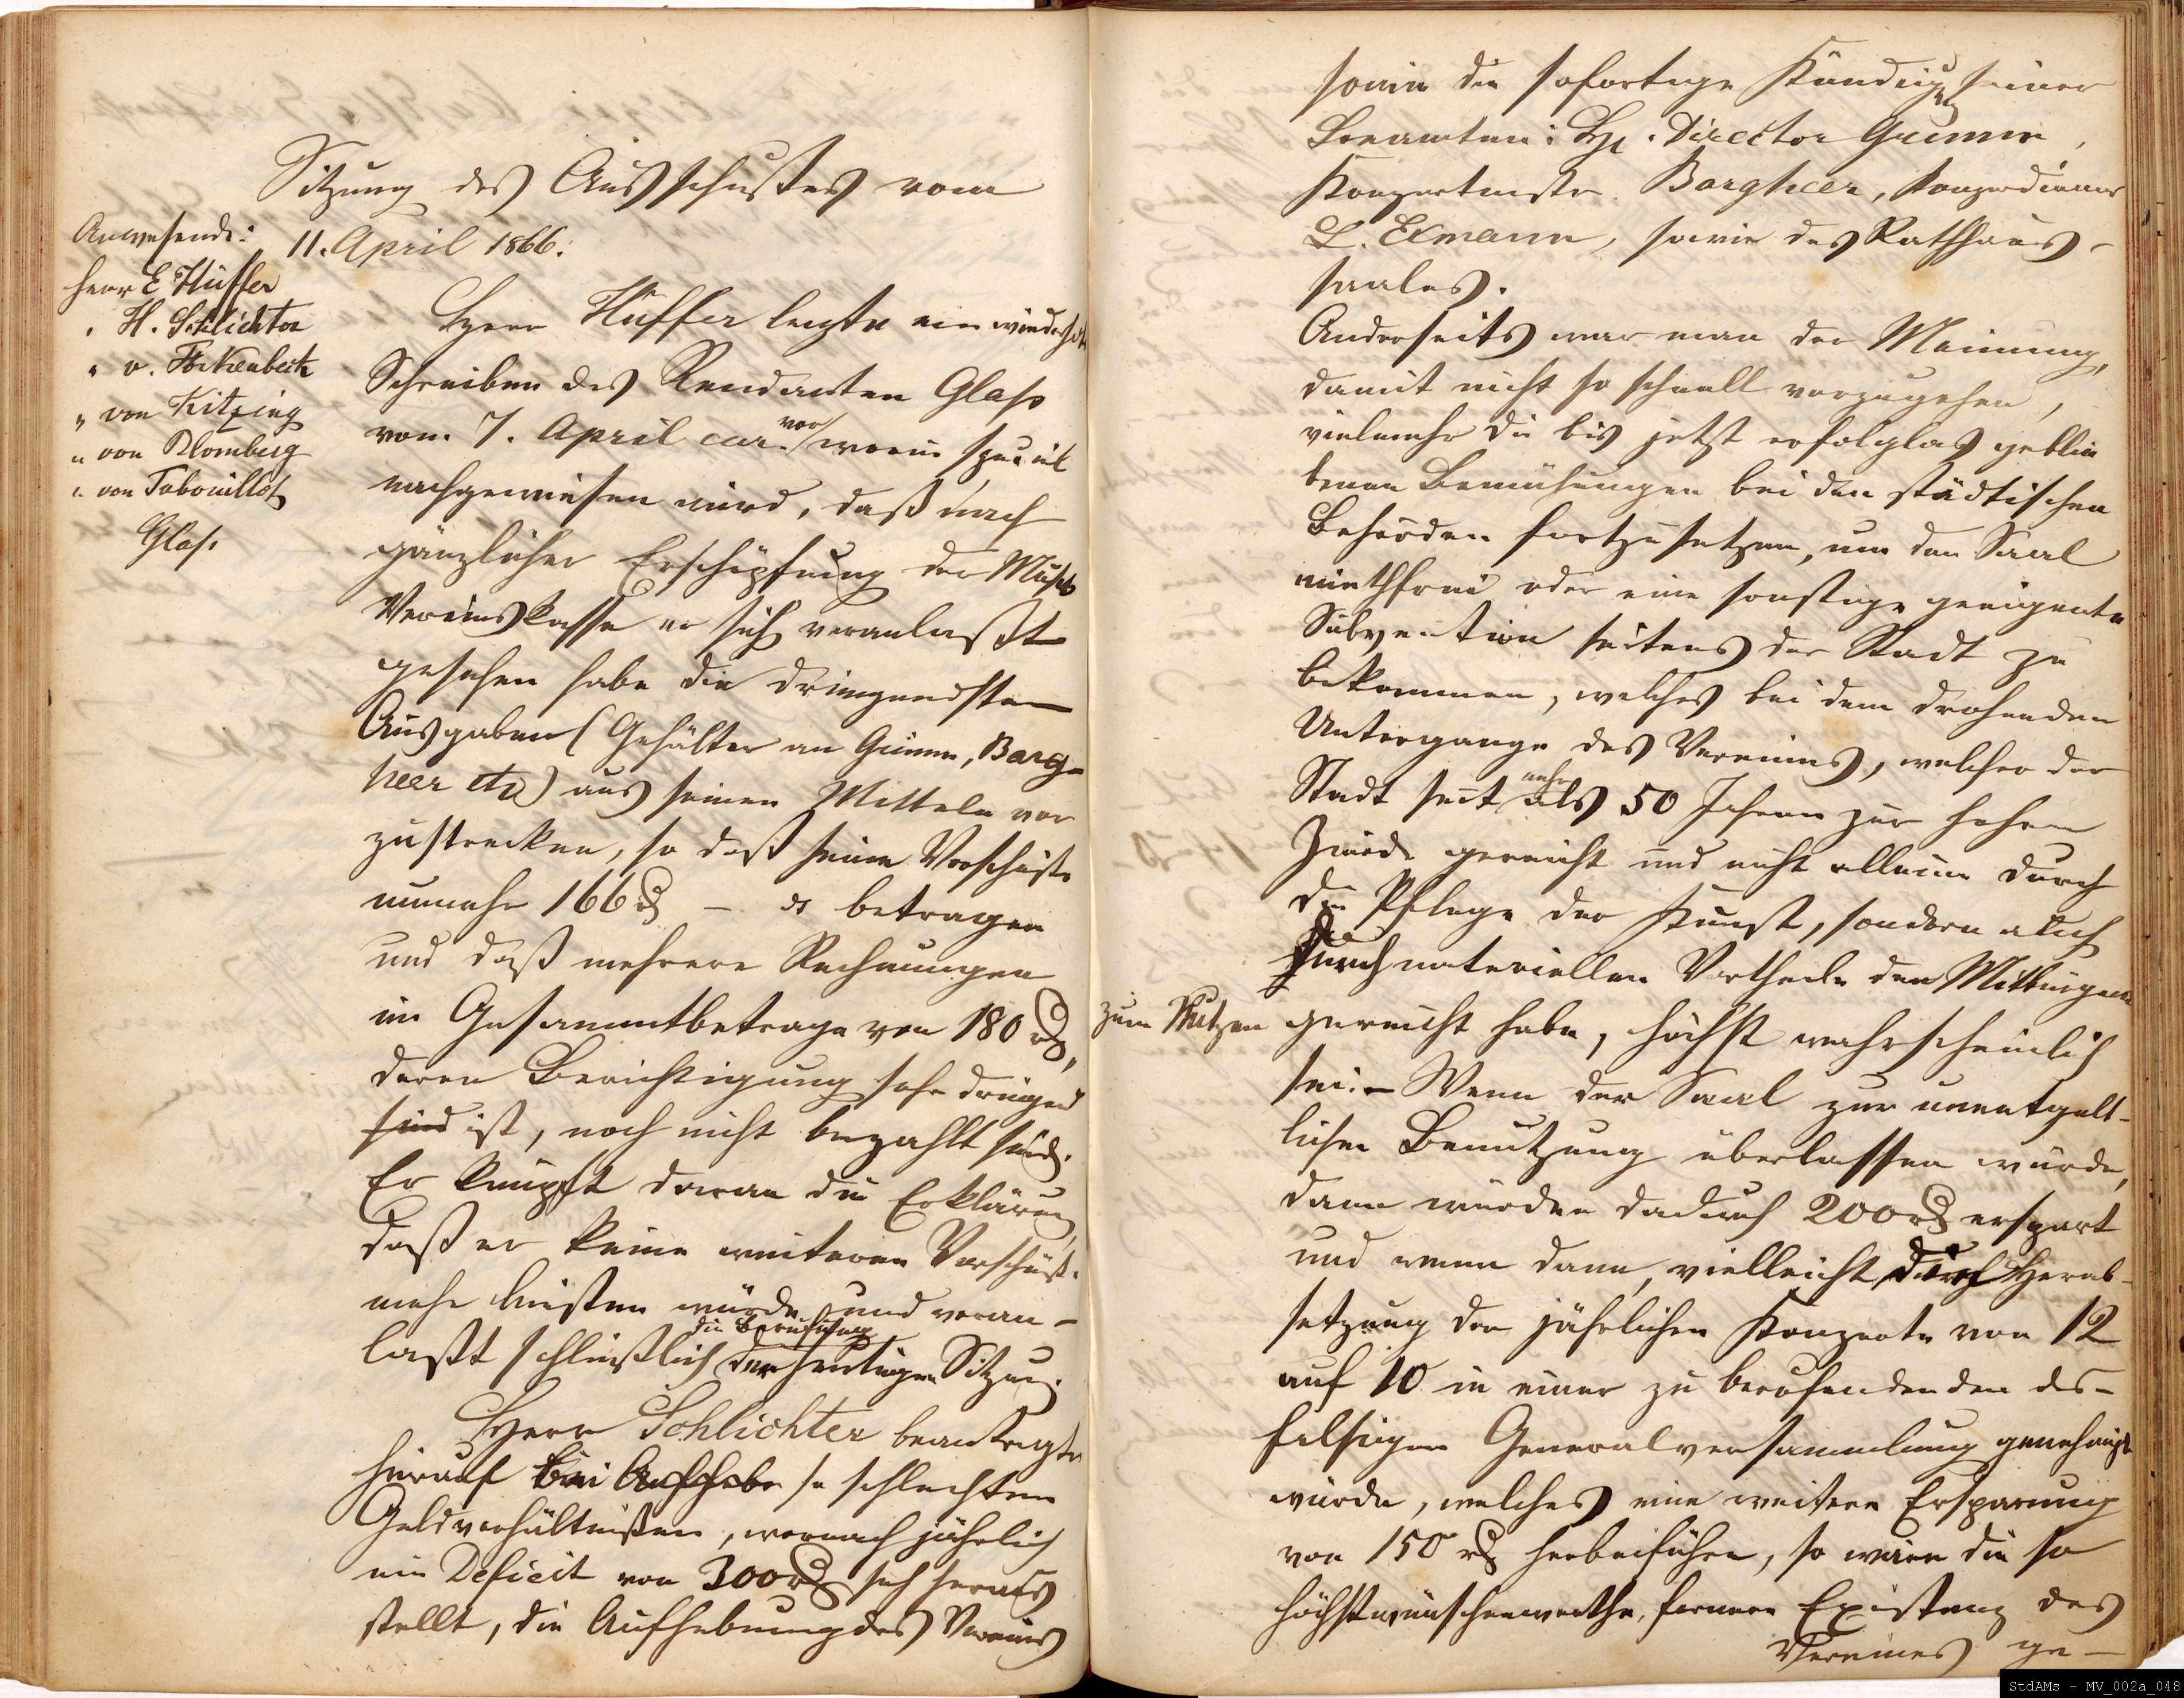 Sitzung des Ausschußes vom
11. April 1866.
Anwesende:
Herr E Hüffer
" H. Schlichter
" v. Forkenbeck
" von Kitzing
" von Blomberg
" von Tabouillot
Glaß.
Herr Hüffer legte ein wiederholtes
Schreiben des Rendanten Glaß
vom 7. April cur. vor, worin speciel
nachgewiesen wird, daß nach
gänzlicher Erschöpfung der Musik
Vereinskasse er sich veranlaßt
gesehen habe die dringendsten
Ausgaben (Gehälter an Grimm, Barg-
heer etc) aus seinen Mitteln vor
zustrecken, so daß seine Vorschüße
nunmehr 166 rtl – betragen
und daß mehrere Rechnungen
im Gesammtbetrage von 180 rtl,
deren Berichtigung sehr dringend
sind ist, noch nicht bezahlt sind.
Er knüpft daran die Erklärung
daß er keine weiteren Vorschüße
mehr leisten würde und veran-
laßt schließlich die Berufung der heutigen Sitzung.
Herr Schlichter beantragte
hierauf bei Aufhebe so schlechten
Geldverhältnißen, wonach jährlich
ein Deficit von 300 rtl sich heraus
stellt, die Aufhebung des Vereins
sowie die sofortige Kündigung seiner
Beamten: Hr. Director Grimm,
Konzertmstr. Bargheer, Konzertdiener
L. Exmann, sowie des Rathhaus-
saales.
Anderseits war man der Meinung,
damit nicht so schnell vorzugehen,
vielmehr die bis jetzt erfolglos geblie
benen Bemühungen bei den städtischen
Behörden fortzusetzen, um den Saal
miethfrei oder eine sonstige geeignete
Subvention seitens der Stadt zu
bekommen, welches bei dem drohenden
Untergange des Vereins, welcher der
Stadt seit mehr als 50 Jahren zur hohen
Zierde gereicht und nicht alleine durch
die Pflege der Kunst, sondern auch
durch materiellen Vortheile den Mitbürgern
zum Nutzen gereicht habe, höchst wahrscheinlich
sei. – Wenn der Saal zur unentgelt-
lichen Benutzung überlassen würde,
dann würden dadurch 200 rtl erspart
und wenn dann, vielleicht durch Herab-
setzung der jährlichen Konzerte von 12
auf 10 in einer zu berufenden des-
falsigen Generalversammlung genehmigt
würde, welches eine weitere Ersparung
von 150 rtl herbeiführe, so wäre die so
höchstwünschenwerthe, fernere Existenz des
Vereines ge-
StdAMs - MV_002a_048